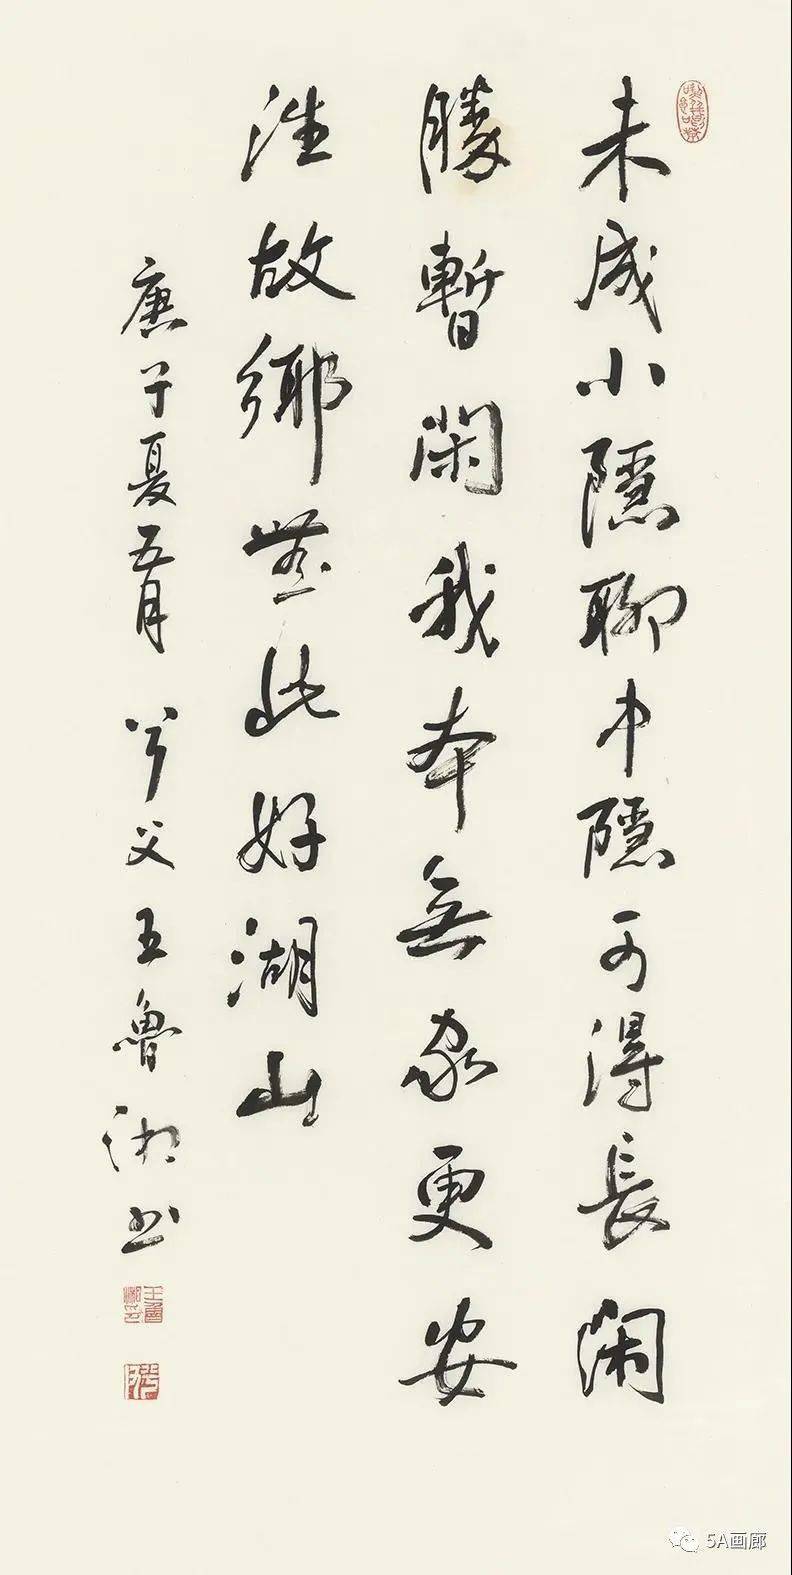 未成小隱聊中隱可得長閑
勝暫閑我本無家更安
往故鄉無此好湖山
庚子夏五月 兮父王魯湘书
王魯湘印
5A画廊